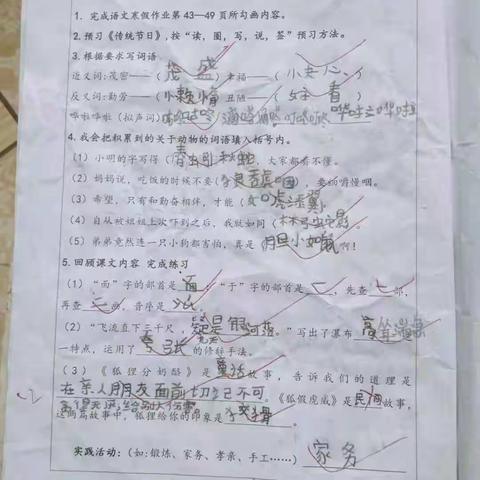 1. 完成语文寒假作业第43—49页所勾画内容。
2. 预习《传统节日》,按“读,圈,写,说,签”预习方法。
3. 根据要求写词语
近义词:茂密——(茂盛)幸福——(开心)
反义词:勤劳——(懒惰)丑陋——(好看)
哗啦哗啦(拟声词)
4. 我会把积累到的关于动物的词语填入括号内。
(1)小明的字写得(春蚓秋蛇,大家都看不懂。
(2)妈妈说,吃饭的时候不要(狼吞虎咽),要细嚼慢咽。
(3)希望,只有和勤奋相伴,才能(如虎添翼)
(4)自从被姐姐上次吓到之后,我就如同(杯弓蛇影)
(5)弟弟竟然连一只小狗都害怕,真是(胆小如鼠)啊!
5. 回顾课文内容 完成练习
(1)“面”字的部首是面;“于”字的部首是一,先查七部,
再查画,音序是
(2)“飞流直下三千尺,疑是银河落。”写出了瀑布高耸
一特点,运用了夸张的修辞手法。
(3)《狐狸分奶酪》是童话,告诉我们的道理是
在亲人朋友面前切记不可
《狐假虎威》是民间故事,
这两篇故事中,狐狸给你的印象是狡猾
实践活动:(如:锻炼、家务、孝亲、手工……)家务